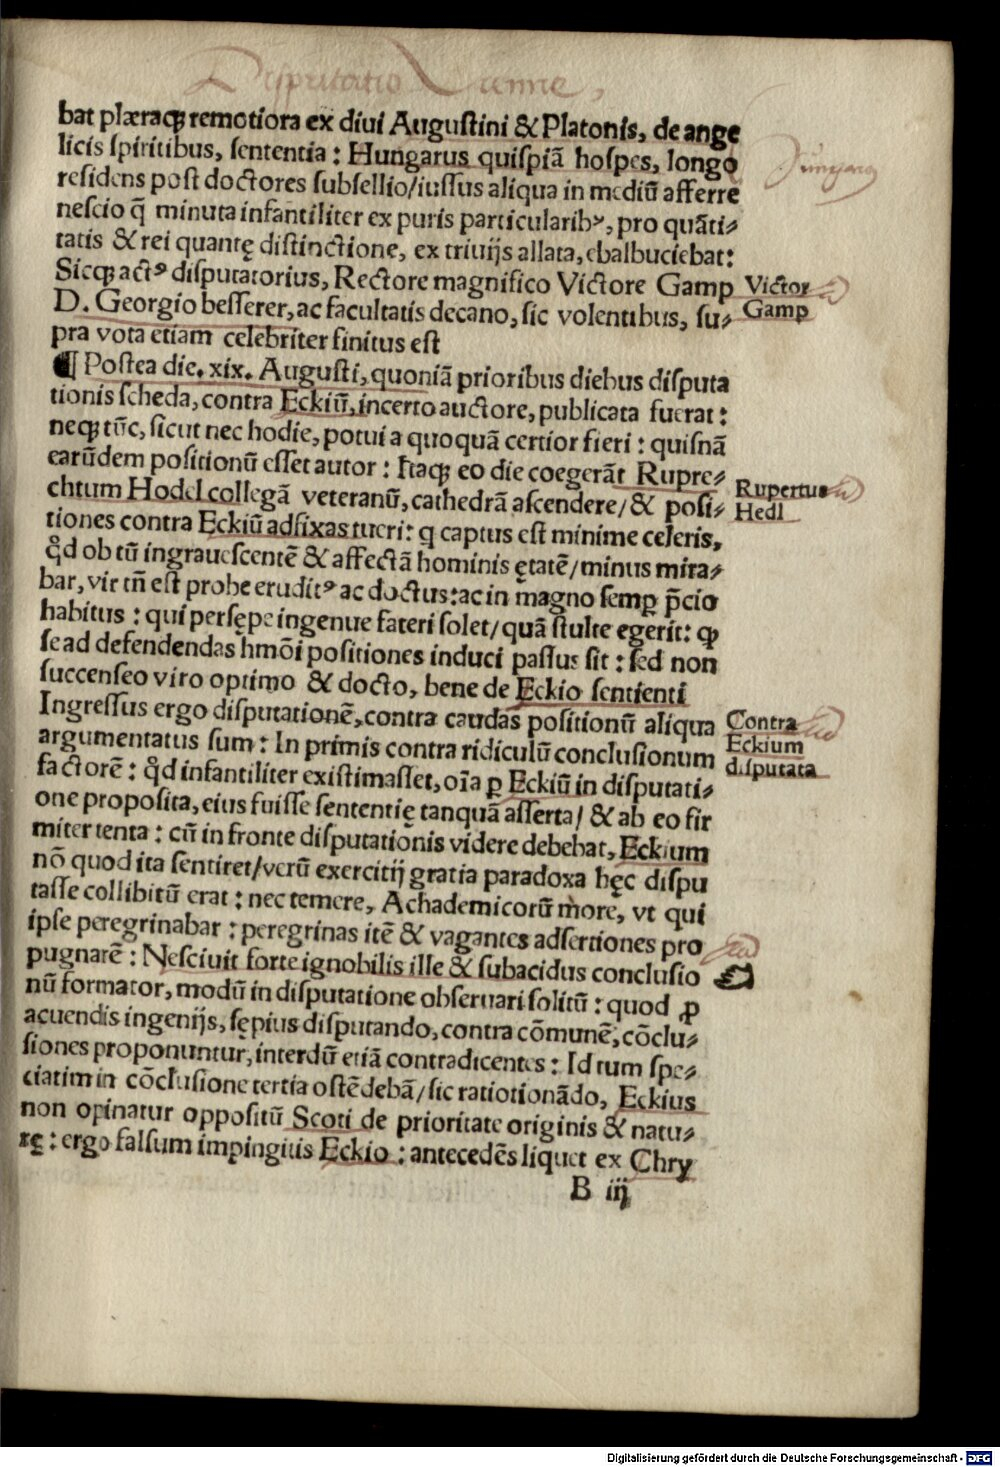 Disputatio Vienne,
bat plæraqꝫ remotiora ex diui Augustini & Platonis, de ange
licis spiritibus, sententia : Hungarus quispiã hospes, longo
residens post doctores subsellio/iussus aliqua in mediũ afferre
nescio q̃ minuta infantiliter ex puris particularibꝰ, pro quãti⸗
tatis & rei quantę distinctione, ex triuijs allata, ebalbuciebat:
Sicqꝫ actꝰ disputatorius, Rectore magnifico Victore Gamp
D. Georgio besserer, ac facultatis decano, sic volentibus, su⸗
pra vota etiam celebriter finitus est
Hungarus
Victor
Gamp
¶ Postea die. xix. Augusti, quoniã prioribus diebus disputa
tionis scheda, contra Eckiũ, incerto auctore, publicata fuerat :
neqꝫ tũc, sicut nec hodie, potui a quoquã certior fieri : quisnã
earũdem positionũ esset autor : Itaqꝫ eo die coegerãt Rupre⸗
chtum Hodel collegã veteranũ, cathedrã ascendere/& posi⸗
tiones contra Eckiũ adfixas tueri: q captus est minime celeris,
qd̊ ob tũ ingrauescentẽ & affectã hominis ętatẽ/minus mira⸗
bar, vir tñ est probe eruditꝰ ac doctus: ac in magno semꝑ p̃cio
habitus : qui persępe ingenue fateri solet/quã stulte egerit: ꝙ
se ad defendendas hmõi positiones induci passus sit : sed non
succenseo viro optimo & docto, bene de Eckio sentienti
Rupertus
Hedl
Ingressus ergo disputationẽ, contra caudas positionũ aliqua
argumentatus sum : In primis contra ridiculũ conclusionum
factorẽ : qd̊ infantiliter existimasset, oĩa ꝑ Eckiũ in disputati⸗
one proposita, eius fuisse sententię tanquã asserta/ & ab eo fir
miter tenta : cũ in fronte disputationis videre debebat, Eckium
nõ quod ita sentiret/verũ exercitij gratia paradoxa hęc dispu
tasse collibitũ erat : nec temere, Achademicorũ more, vt qui
ipse peregrinabar : peregrinas itẽ & vagantes adsertiones pro
pugnarẽ : Nesciuit forte ignobilis ille & subacidus conclusio
nũ formator, modũ in disputatione obseruari solitũ : quod ꝓ
acuendis ingenijs, sępius disputando, contra cõmunẽ, cõclu⸗
siones proponuntur, interdũ etiã contradicentes : Id tum spe⸗
ciatim in cõclusione tertia ostẽdebã/ sic ratiotionãdo, Eckius
non opinatur oppositũ Scoti de prioritate originis & natu⸗
rę : ergo falsum impingitis Eckio : antecedẽs liquet ex Chry
Contra
Eckium
disputata
B iij
Digitalisierung gefördert durch die Deutsche Forschungsgemeinschaft - DFG